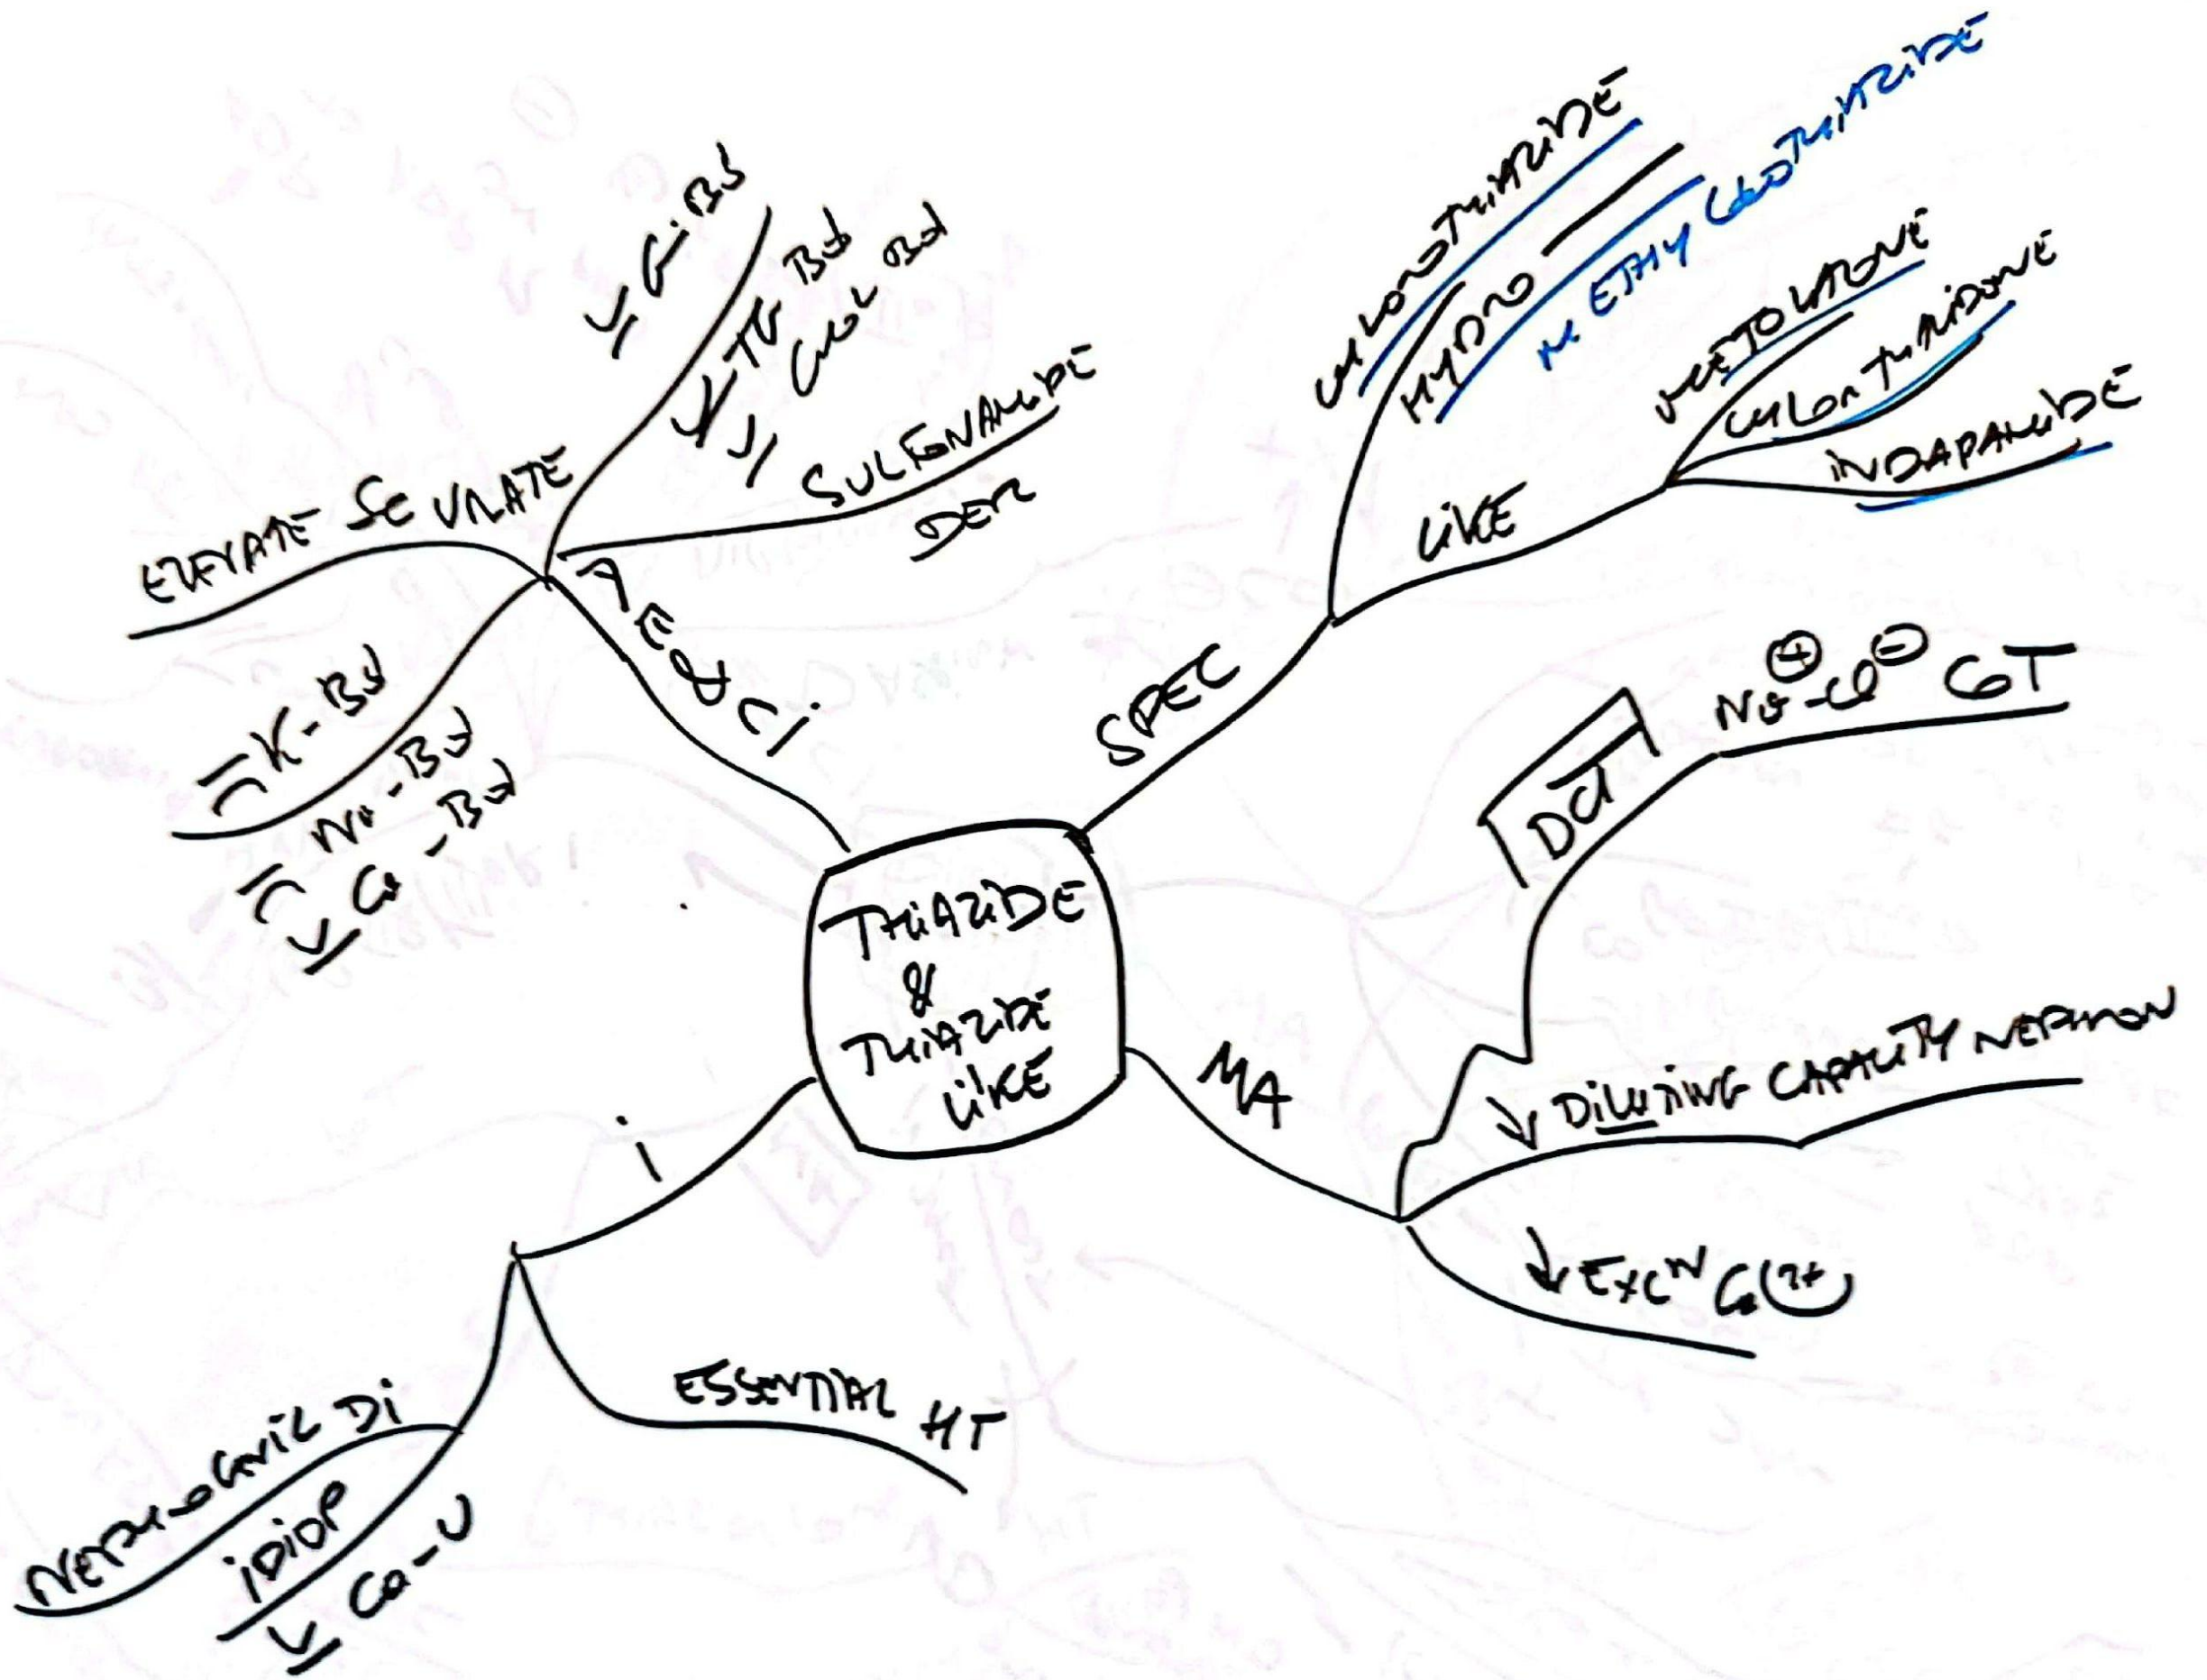 THIAZIDE
&
THIAZIDE
LIKE
SPEC
CHLOROTHIAZIDE
HYDRO
METHYCLOTHIAZIDE
LIKE
METOLAZONE
CHLORTHALIDONE
INDAPAMIDE
MA
DCT
Na⊕-Cl⊖ CoT
↓ DILUTING CAPACITY NEPHRON
↓ EXCN Ca(2+)
i
ESSENTIAL HT
NEPHROGENIC Di
IDIOP
Ca-U
AE & Ci
ELEVATE SE URATE
K-Bd
Na-Bd
Ca-Bd
Gi Bd
TG Bd
Chol Bd
SULFONAMIDE
DER